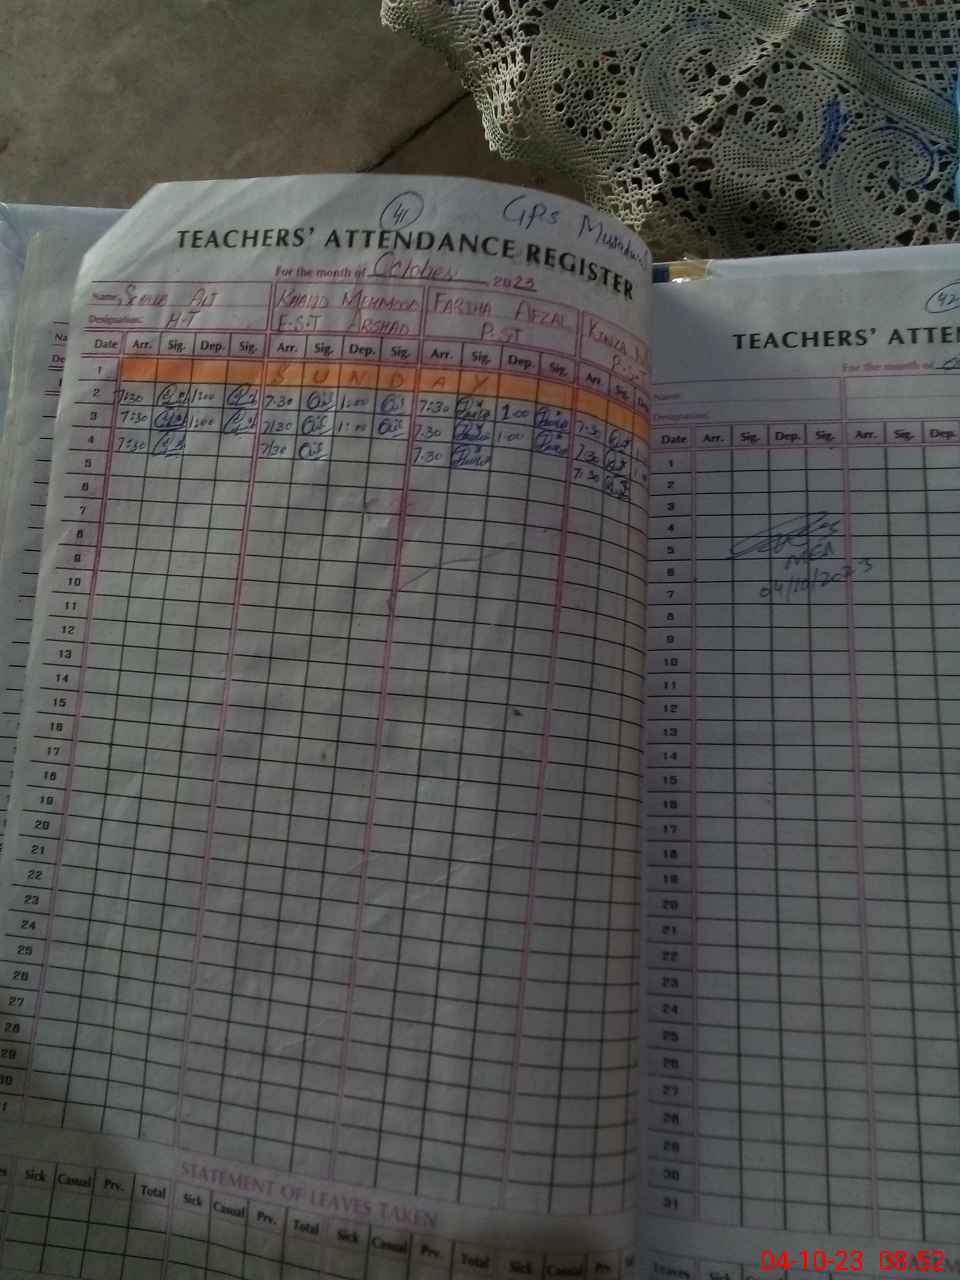 41
GPS
TEACHERS' ATTENDANCE REGISTER
For the month of October 2023
Name: Ali KHALID MEHMOOD FARIHA AFZAL KINZA
Designation: H.T E.S.T ARSHAD P.ST
Date Arr. Sig. Dep. Sig. Arr. Sig. Dep. Sig. Arr. Sig. Dep. Sig. Arr. Sig.
1 SUNDAY
2 7:30 1:00 7:30 1:00 7:30 1:00 7:30
3 7:30 1:00 7/30 1:00 7.30 1:00 7:30
4 7:30 7/30 7.30 7:30
5
6
7
8
9
10
11
12
13
14
15
16
17
18
19
20
21
22
23
24
25
26
27
28
29
30
STATEMENT OF LEAVES TAKEN
Sick Casual Prv. Total Sick Casual Prv. Total Sick Casual Prv. Total Sick Casual
42
TEACHERS' ATTEN
For the month of
Name:
Designation:
Date Arr. Sig. Dep. Sig. Arr. Sig. Dep.
1
2
3
4
5
6
7
MEA
04/10/2023
8
9
10
11
12
13
14
15
16
17
18
19
20
21
22
23
24
25
26
27
28
29
30
31
Leaves Sick
04-10-23 08:52